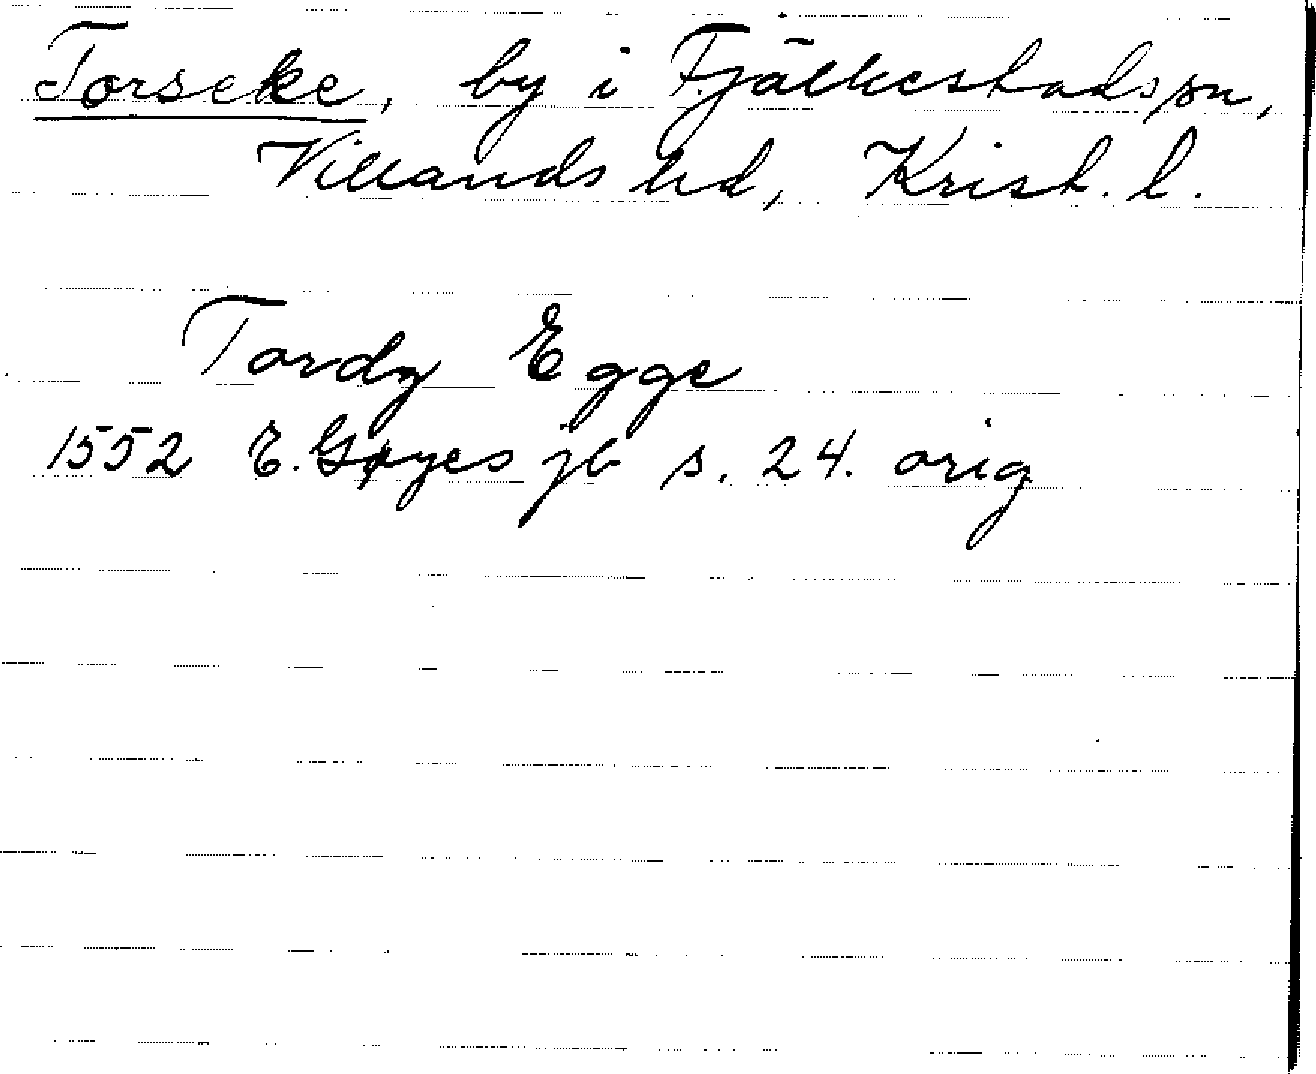 Torseke, by i Fjälkestads sn,
Villands hd, Krist. l.
Tordz Egge
1552 E. Gøyes jb s. 24. orig